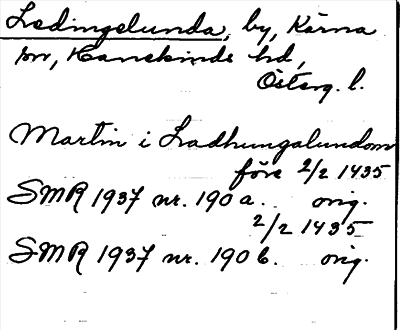 Ledingelunda, by, Kärna
sn, Hanekinds hd,
Österg. l.
Martin i Ladhungalundom
före 2/2 1435
SMR 1937 nr. 190 a. orig.
2/2 1435
SMR 1937 nr. 190 b. orig.